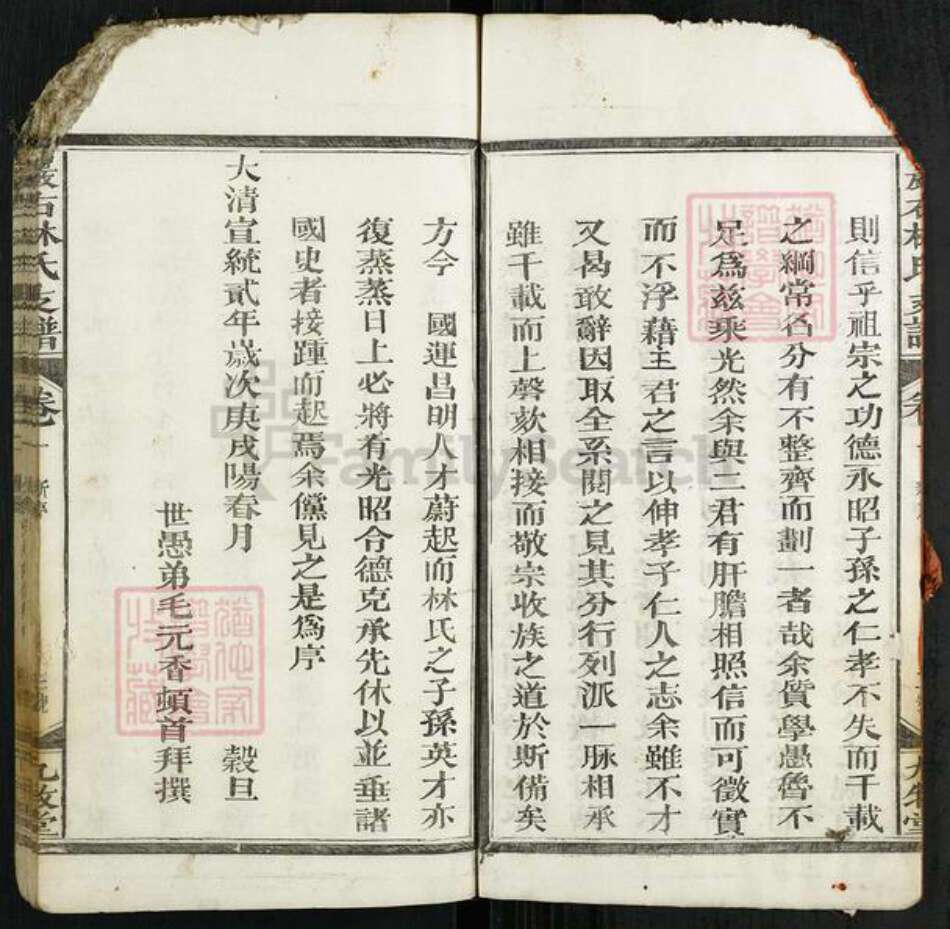 則信乎祖宗之功德永昭子孫之仁孝不失而千載
之綱常名分有不整齊而劃一者哉余質學愚魯不
足爲兹乘光然余與二君有肝膽相照信而可徵實
而不浮藉主君之言以伸孝子仁人之志余雖不才
又曷敢辭因取全系閱之見其分行列派一脉相承
雖千載而上謦欬相接而敬宗收族之道於斯備矣
方今 國運昌明人才蔚起而林氏之子孫英才亦
復蒸蒸日上必將有光昭令德克承先休以並垂諸
國史者接踵而起焉余儻見之是爲序
大清宣統貳年歲次庚戌陽春月 穀旦
世愚弟毛元香頓首拜撰
石林氏支譜
卷一
九牧堂
FamilySearch